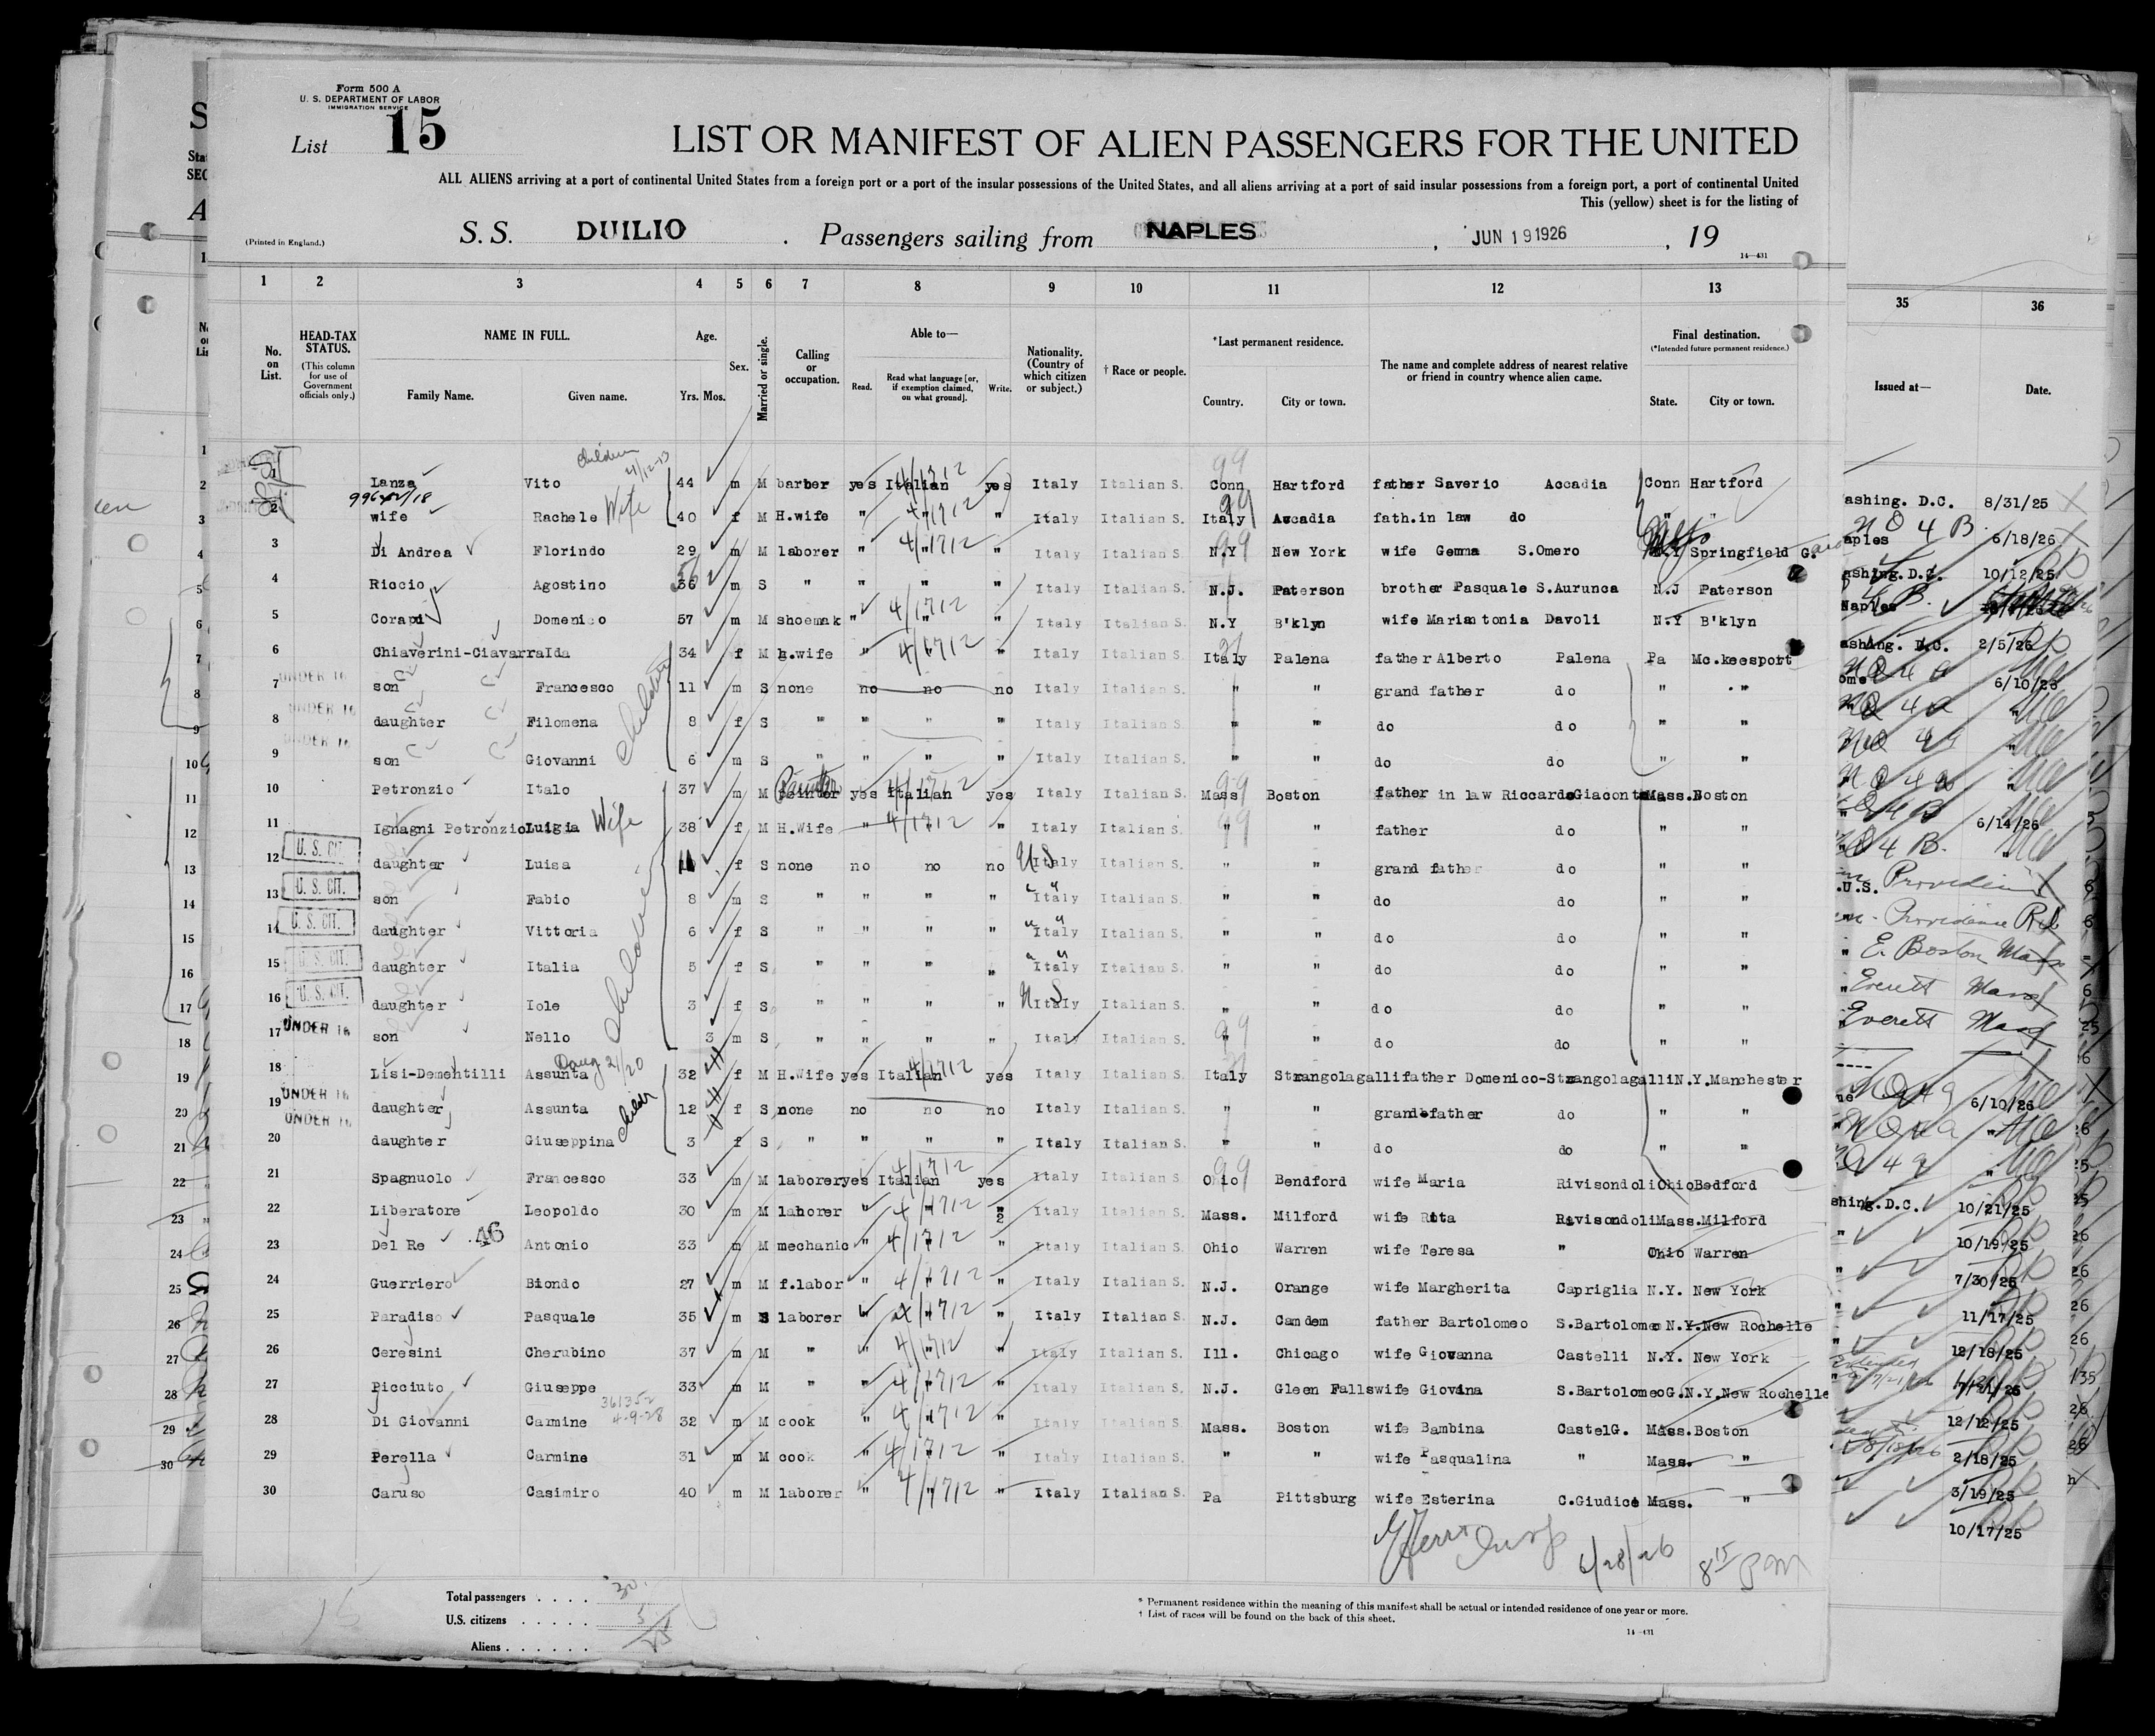 Form 500 A
U. S. DEPARTMENT OF LABOR
IMMIGRATION SERVICE
List 15
LIST OR MANIFEST OF ALIEN PASSENGERS FOR THE UNITED
ALL ALIENS arriving at a port of continental United States from a foreign port or a port of the insular possessions of the United States, and all aliens arriving at a port of said insular possessions from a foreign port, a port of continental United
This (yellow) sheet is for the listing of
(Printed in England.) S. S. DUILIO . Passengers sailing from NAPLES , JUN 19 1926 , 19
14—431
1 2 3 4 5 6 7 8 9 10 11 12 13 35 36
No. on List. HEAD-TAX STATUS. (This column for use of Government officials only.) NAME IN FULL. Family Name. Given name. Age. Yrs. Mos. Sex. Married or single. Calling or occupation. Able to— Read. Read what language [or, if exemption claimed, on what ground]. Write. Nationality. (Country of which citizen or subject.) † Race or people. *Last permanent residence. Country. City or town. The name and complete address of nearest relative or friend in country whence alien came. Final destination. (*Intended future permanent residence.) State. City or town. Issued at— Date.
Children
1 Lanza Vito 44 m M barber yes Italian yes Italy Italian S. Conn Hartford father Saverio Accadia Conn Hartford
2 wife Rachele Wife 40 f M H.wife " " " Italy Italian S. Italy Accadia fath.in law do " " ashing. D.C. 8/31/25
3 Di Andrea Florindo 29 m M laborer " " " Italy Italian S. N.Y New York wife Gemma S.Omero N.Y Springfield G. aples 6/18/26
4 Riccio Agostino 36 m S " " " " Italy Italian S. N.J. Paterson brother Pasquale S.Aurunca N.J Paterson ashing.D.C. 10/12/25
5 Corapi Domenico 57 m M shoemak " " " Italy Italian S. N.Y B'klyn wife Mariantonia Davoli N.Y B'klyn Naples
6 Chiaverini-Ciavarra Ida 34 f M h.wife " " " Italy Italian S. Italy Palena father Alberto Palena Pa Mc.keesport ashing. D.C. 2/5/26
7 UNDER 16 son Francesco 11 m S none no no no Italy Italian S. " " grand father do " " ome 6/10/26
8 UNDER 16 daughter Filomena 8 f S " " " " Italy Italian S. " " do do " "
9 UNDER 16 son Giovanni 6 m S " " " " Italy Italian S. " " do do " "
10 Petronzio Italo 37 m M Painter yes Italian yes Italy Italian S. Mass Boston father in law Riccardo Mass. Boston
11 Ignagni Petronzio Luigia Wife 38 f M H.Wife " " " Italy Italian S. " " father do " " 6/14/26
12 U. S. CIT. daughter Luisa f S none no no no US Italy Italian S. " " grand father do " "
13 U. S. CIT. son Fabio 8 m S " " " " Italy Italian S. " " do do " " .U.S.
14 U. S. CIT. daughter Vittoria 6 f S " " " " Italy Italian S. " " do do " " Providence R.I.
15 U. S. CIT. daughter Italia 5 f S " " " " Italy Italian S. " " do do " " E. Boston Mass
16 U. S. CIT. daughter Iole 3 f S " " " " US Italy Italian S. " " do do " " Everett Mass
17 UNDER 16 son Nello 3 m S " " " " Italy Italian S. " " do do " " Everett Mass
18 Lisi-Dementilli Assunta 32 f M H.Wife yes Italian yes Italy Italian S. Italy Strangolagalli father Domenico-Strangolagalli N.Y. Manchester
19 UNDER 16 daughter Assunta 12 f S none no no no Italy Italian S. " " grand father do " " 6/10/26
20 UNDER 16 daughter Giuseppina 3 f S " " " " Italy Italian S. " " do do " "
21 Spagnuolo Francesco 33 m M laborer yes Italian yes Italy Italian S. Ohio Bendford wife Maria Rivisondoli Ohio Bedford
22 Liberatore Leopoldo 30 m M laborer " " " Italy Italian S. Mass. Milford wife Rita Rivisondoli Mass. Milford shing.D.C. 10/21/25
23 Del Re Antonio 33 m M mechanic " " " Italy Italian S. Ohio Warren wife Teresa " Ohio Warren " 10/19/25
24 Guerriero Biondo 27 m M f.labor " " " Italy Italian S. N.J. Orange wife Margherita Capriglia N.Y. New York " 7/30/25
25 Paradiso Pasquale 35 m S laborer " " " Italy Italian S. N.J. Camdem father Bartolomeo S.Bartolomeo N.Y. New Rochelle " 11/17/25
26 Ceresini Cherubino 37 m M " " " " Italy Italian S. Ill. Chicago wife Giovanna Castelli N.Y. New York " 12/18/25
27 Picciuto Giuseppe 33 m M " " " " Italy Italian S. N.J. Gleen Falls wife Giovina S.BartolomeoG. N.Y. New Rochelle 7/21/25
28 Di Giovanni Carmine 4-9-28 32 m M cook " " " Italy Italian S. Mass. Boston wife Bambina CastelG. Mass. Boston 12/12/25
29 Perella Carmine 31 m M cook " " " Italy Italian S. " " wife Pasqualina " Mass. " 2/18/25
30 Caruso Casimiro 40 m M laborer " " " Italy Italian S. Pa Pittsburg wife Esterina C.Giudice Mass. " 3/19/25
10/17/25
6/28/26 8 15 PM
Total passengers . . . . 30
U.S. citizens . . . . . 5
Aliens . . . . . . 25
* Permanent residence within the meaning of this manifest shall be actual or intended residence of one year or more.
† List of races will be found on the back of this sheet.
14—431